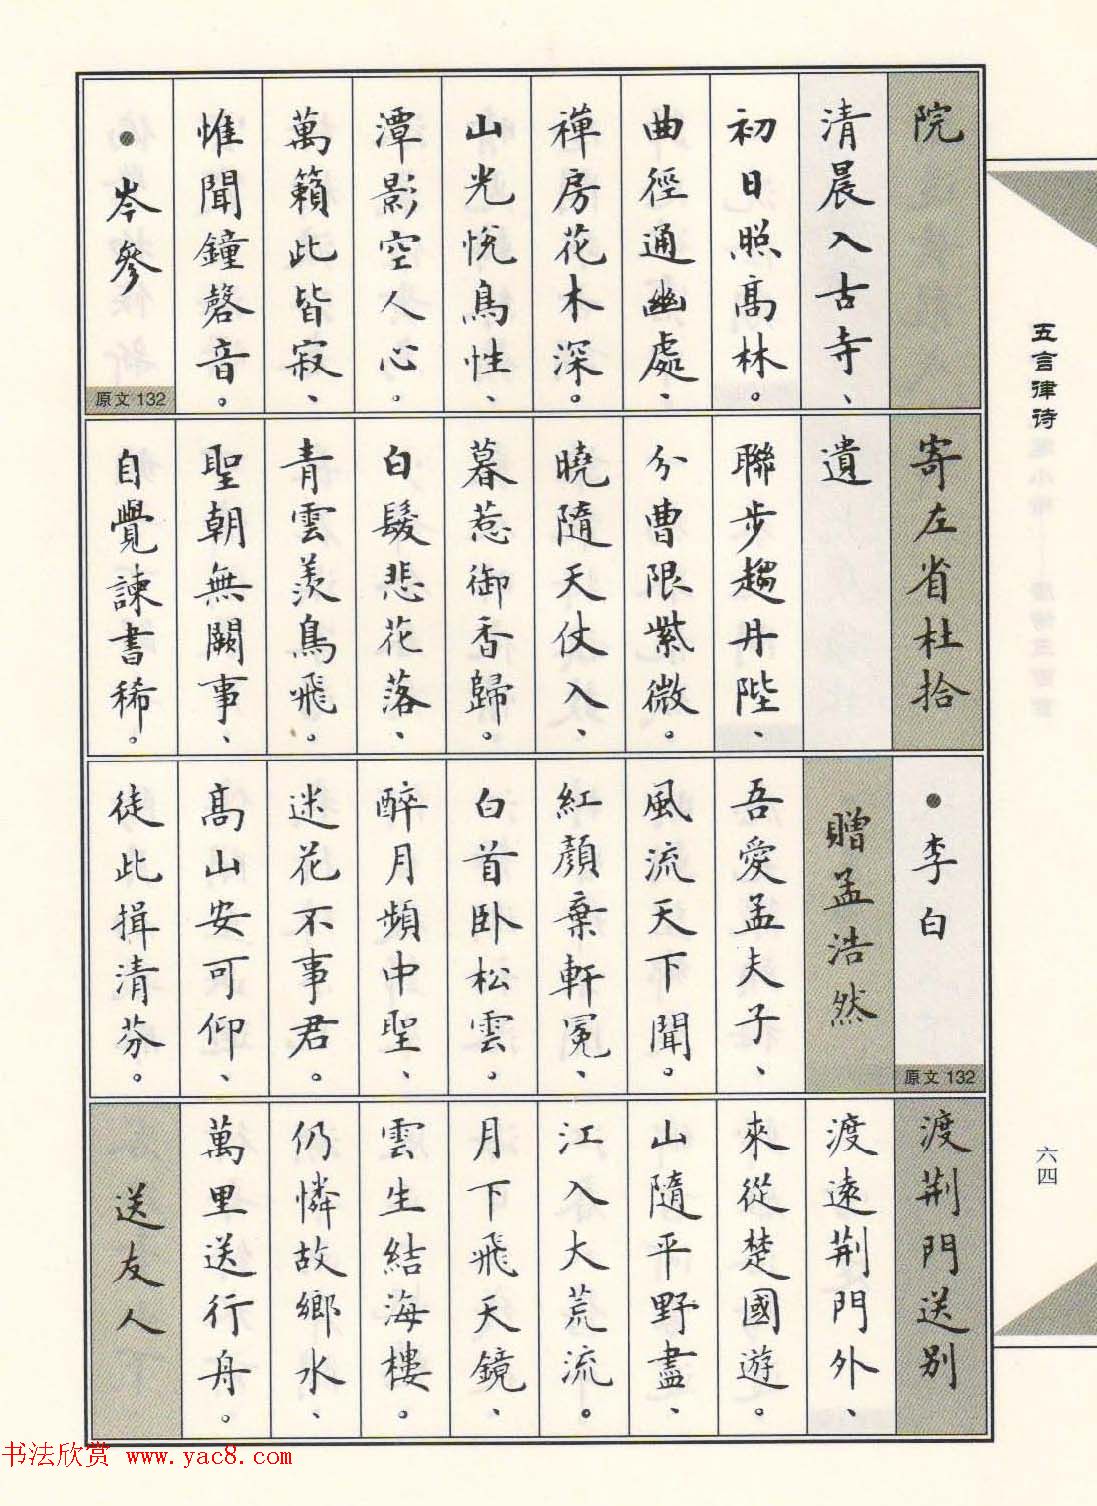 院
清晨入古寺、
初日照高林。
曲徑通幽處、
禪房花木深。
山光悅鳥性、
潭影空人心。
萬籟此皆寂、
惟聞鐘磬音。
●岑參
原文132
寄左省杜拾
遺
聯步趨丹陛、
分曹限紫微。
曉隨天仗入、
暮惹御香歸。
白髮悲花落、
青雲羨鳥飛。
聖朝無闕事、
自覺諫書稀。
●李白
原文132
贈孟浩然
吾愛孟夫子、
風流天下聞。
紅顏棄軒冕、
白首臥松雲。
醉月頻中聖、
迷花不事君。
高山安可仰、
徒此揖清芬。
渡荆門送别
渡遠荆門外、
來從楚國遊。
山隨平野盡、
江入大荒流。
月下飛天鏡、
雲生結海樓。
仍憐故鄉水、
萬里送行舟。
送友人
五言律诗
六四
书法欣赏 www.yac8.com